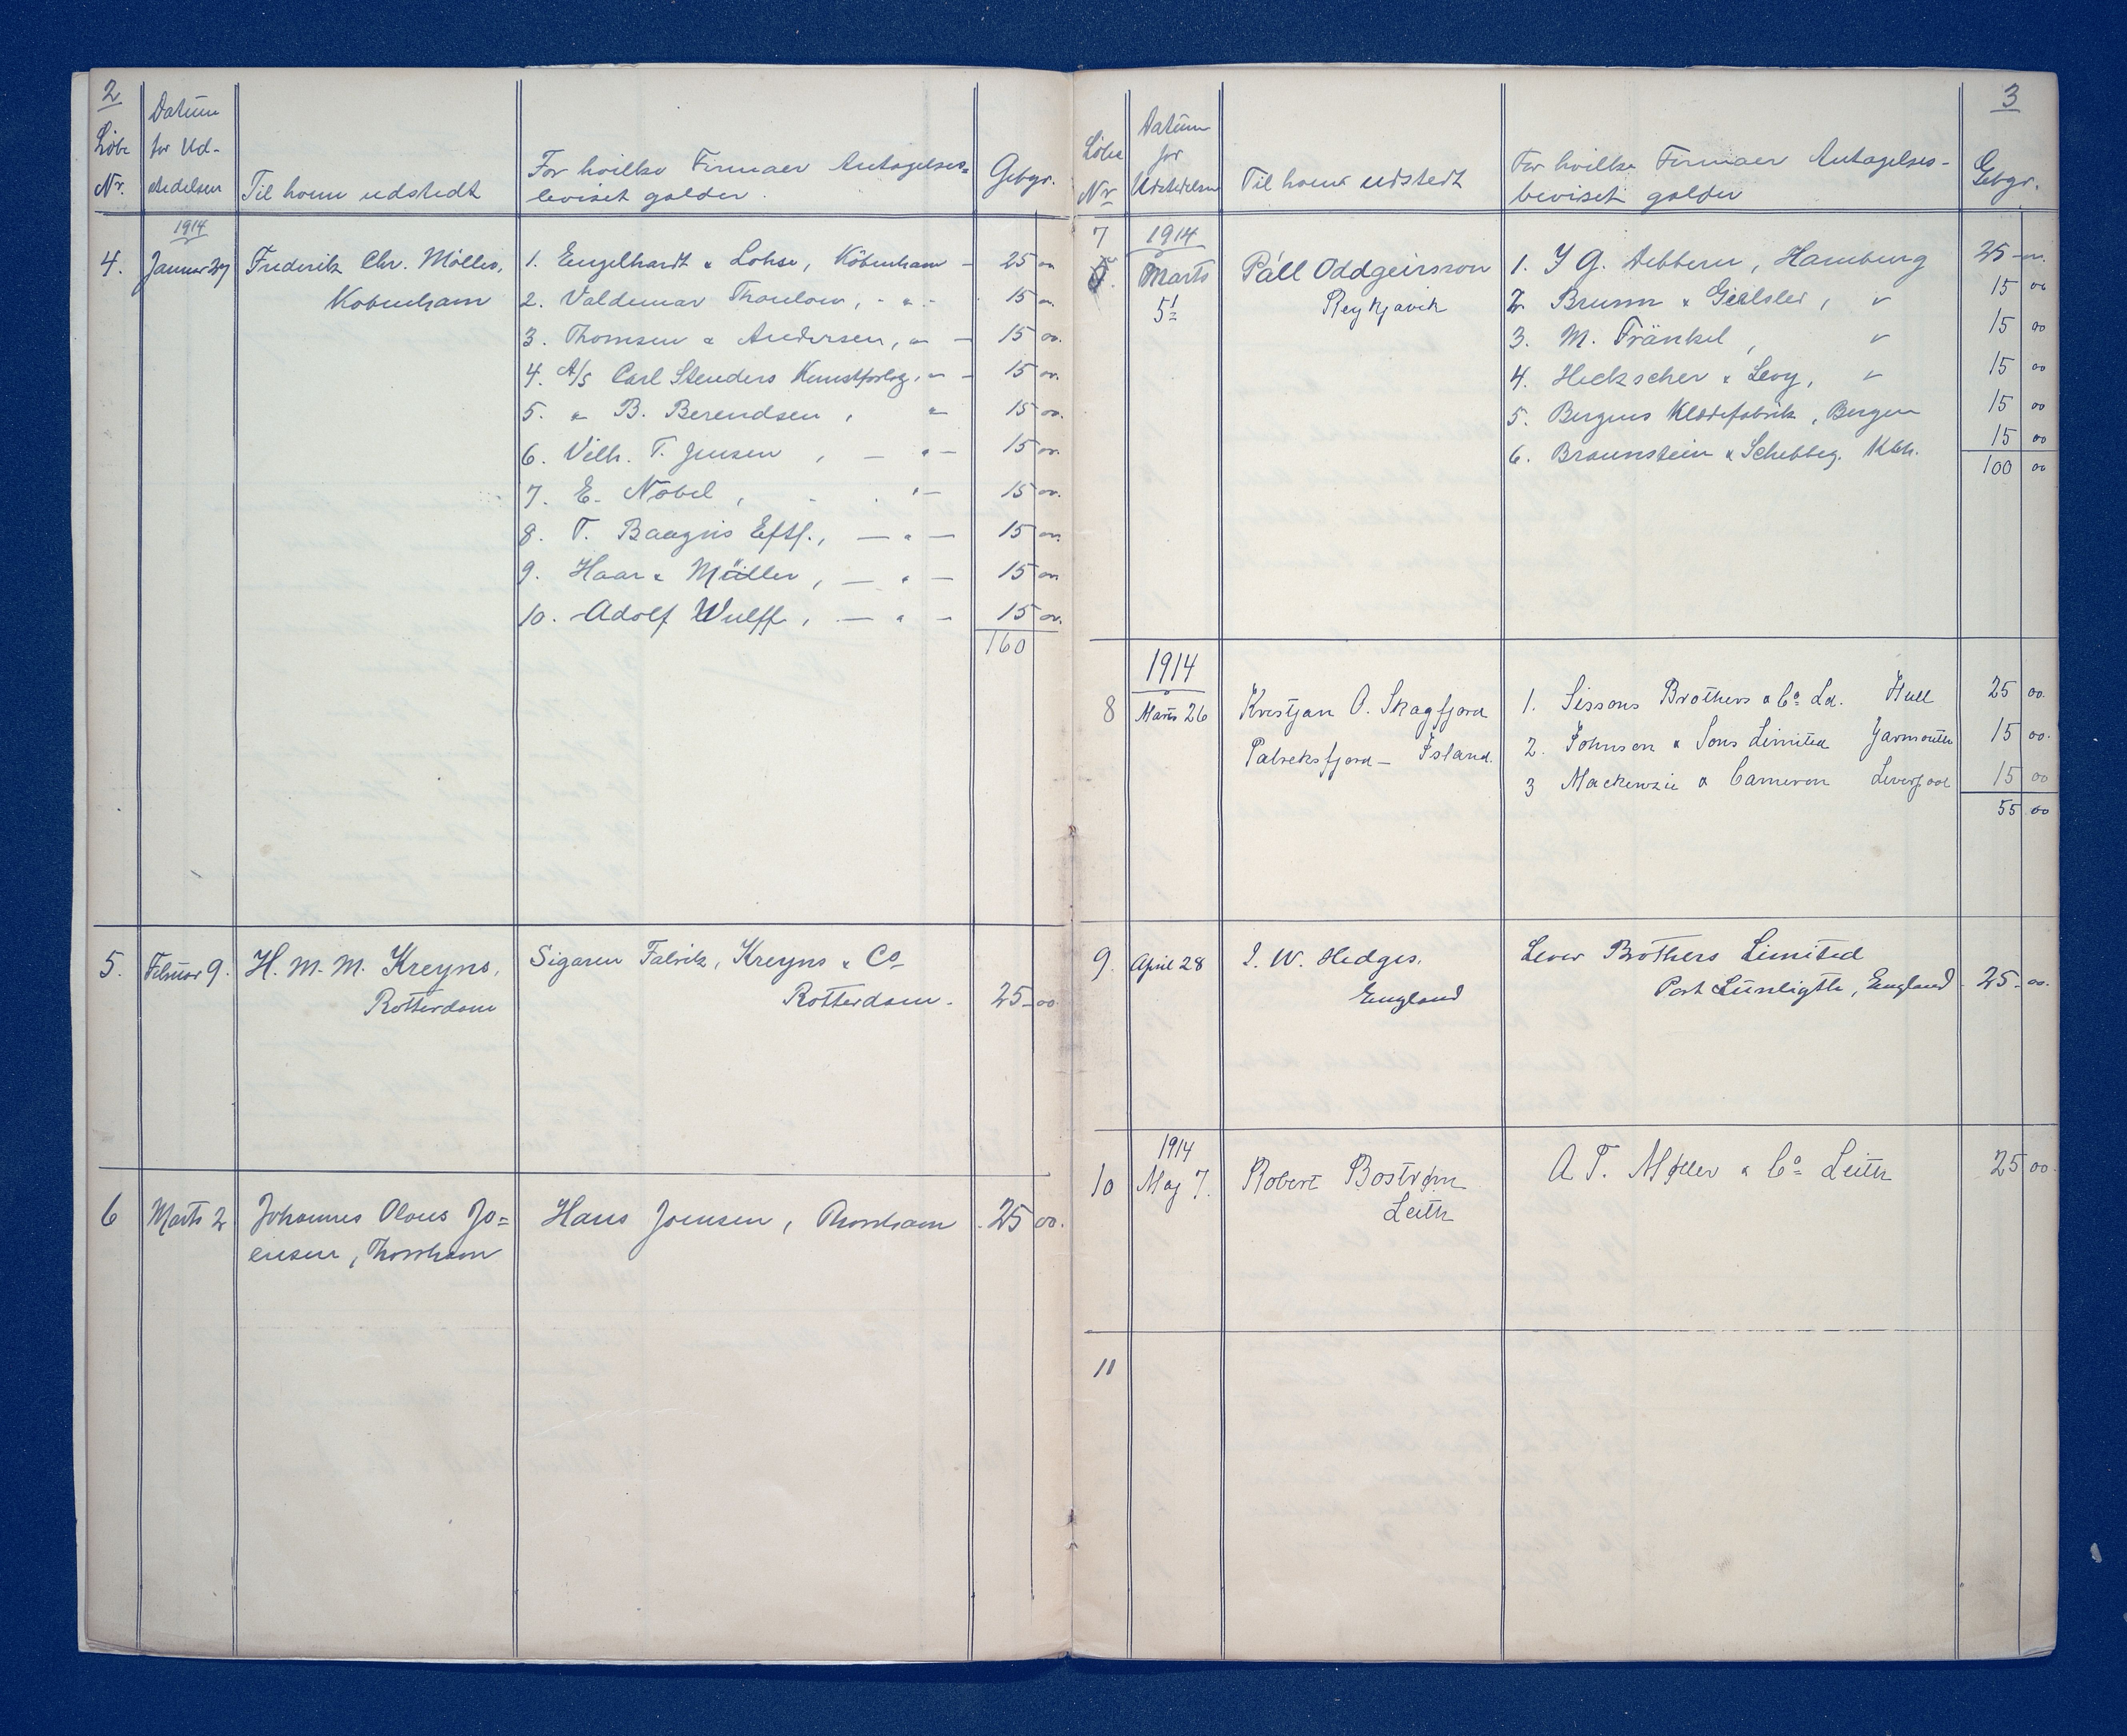 2
Løbe Nr.
Datum for Ud-stedelsen
Til hvem udstedt
For hvilke Firmaer Antagelses=
beviset gælder.
Gebyr.
1914
4. Januar 27 Frederik Chr. Möller, 1. Engelhardt & Lohse, Köbenhavn – 25 00
Kobenhavn 2. Valdemar Thaulow, - " - 15 00
3. Thomsen & Andersen, " – 15 00.
4. A/S Carl Stenders Kunstforlag, " – 15 00.
5. " B. Berendsen, " 15 00.
6. Vilh. T. Jensen, – " – 15 00.
7. E. Nobel, " – 15 00.
8. T. Baagøis Eftf., – " – 15 00
9. Haar & Müller, – " – 15 00
10. Adolf Wulff, – " – 15 00.
160
5. Februar 9. H. M. M. Kreyns, Sigaren Fabrik, Kreyns & Co
Rotterdam Rotterdam. 25 00
6 Marts 2 Johannes Olaus Jo= Hans Joensen, Thorshavn 25 00.
ensen, Thorshavn
3
Løbe Nr
Datum for Udstedelsen
Til hvem udstedt
For hvilke Firmaer Antagelses-
beviset gælder
Gebyr.
7 1914
Marts Páll Oddgeirsson 1. J G. Aebbern, Hamburg 25 00.
5t Reykjavik 2. Brunn & Geilsler, " 15 00
3. M. Fränkel, " 15 00
4. Heckscher & Levy, " 15 00
5. Bergens Klædefabrik, Bergen 15 00
6. Braunstein & Schebbey. Kbh. 15 00
100 00
1914
8 Marts 26 Kristjan Ó. Skagfjord 1. Sissons Brothers & Co Ld. Hull 25 00.
Patreksfjord – Island. 2. Johnson & Sons Limited Yarmouth 15 00.
3 Mackenzie & Cameron Liverpool 15 00
55 00
9. April 28 I. W. Hedges. Lever Brothers Limited
England Port Sunligth, England 25 00.
1914
10 Maj 7. Robert Bostrøm A T. Møller & Co Leith 25 00
Leith
11